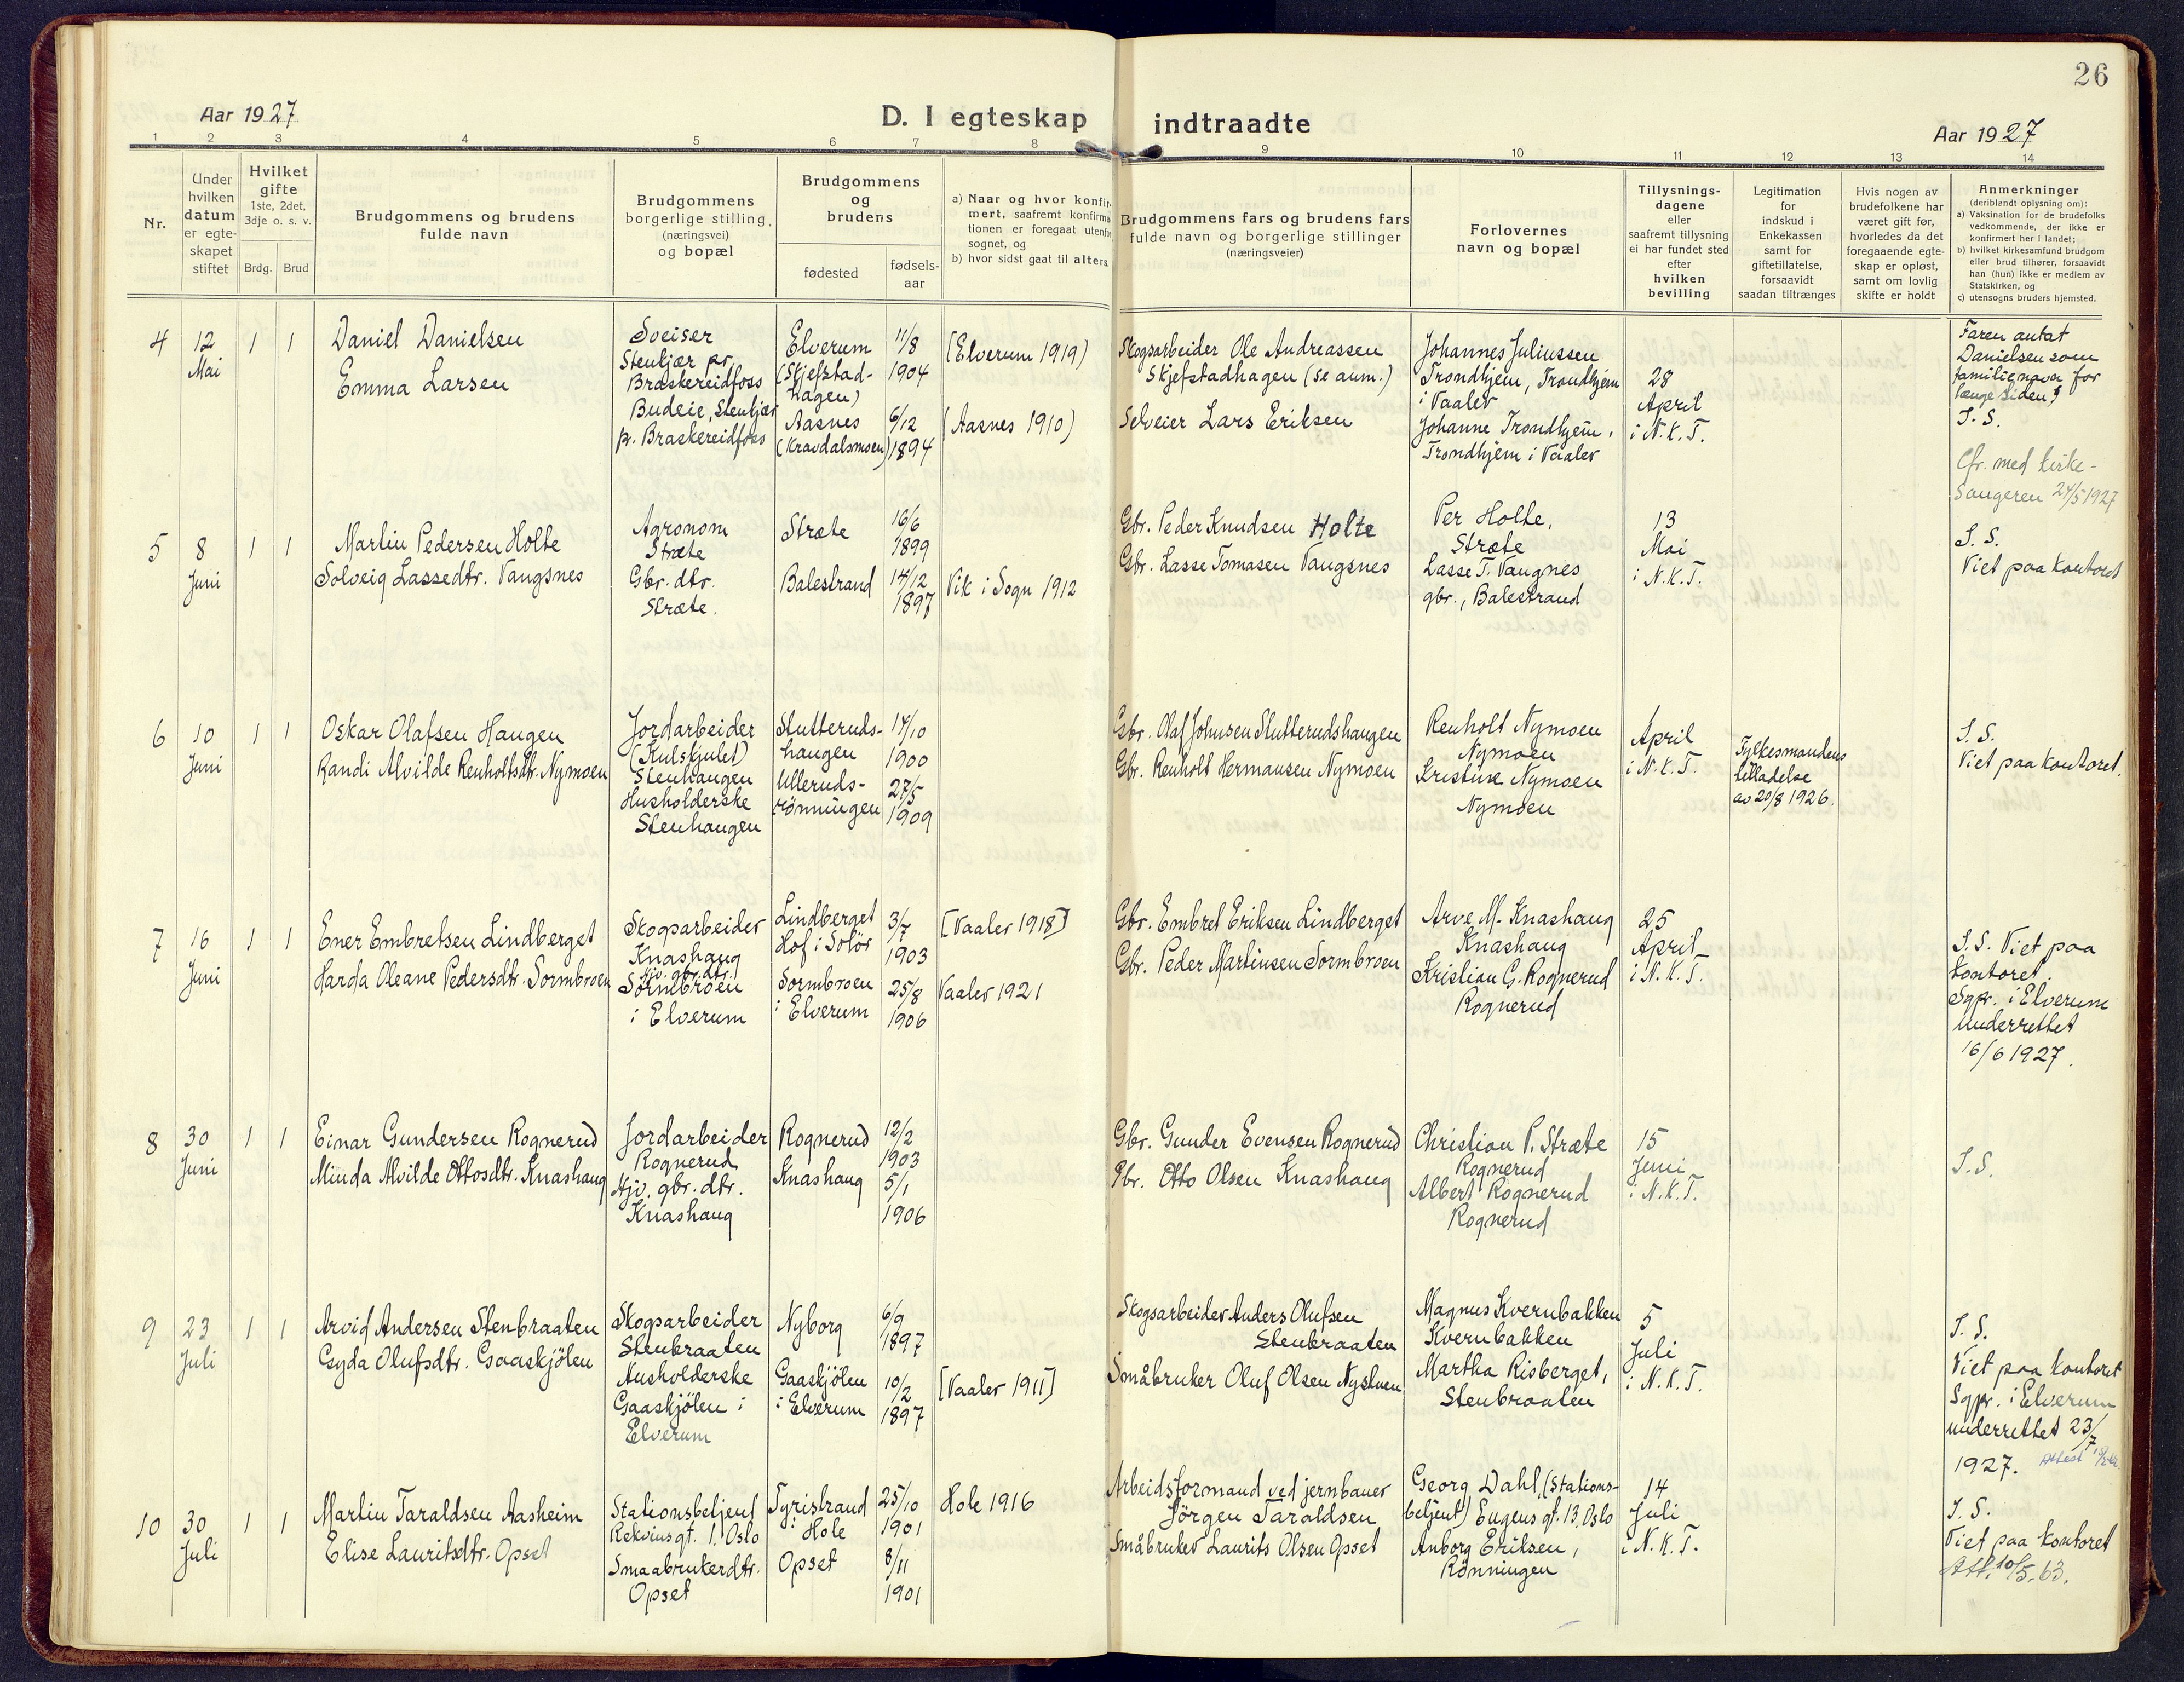 26
Aar 1927
D. I egteskap indtraadte
Aar 1927
1 2 3 4 5 6 7 8 9 10 11 12 13 14
Nr.
Under
hvilken
datum
er egte-
skapet
stiftet
Hvilket
gifte
1ste, 2det,
3dje o. s. v.
Brdg. Brud
Brudgommens og brudens
fulde navn
Brudgommens
borgerlige stilling
(næringsvei)
og bopæl
Brudgommens
og
brudens
fødested
fødsels-
aar
a) Naar og hvor konfir-
mert, saafremt konfirma
tionen er foregaat utenfor
sognet, og
b) hvor sidst gaat til alters.
Brudgommens fars og brudens fars
fulde navn og borgerlige stillinger
(næringsveier)
Forlovernes
navn og bopæl
Tillysnings-
dagene
eller
saafremt tillysning
ei har fundet sted
efter
hvilken
bevilling
Legitimation
for
indskud i
Enkekassen
samt for
giftetillatelse,
forsaavidt
saadan tiltrænges
Hvis nogen av
brudefolkene har
været gift før,
hvorledes da det
foregaaende egte-
skap er opløst,
samt om lovlig
skifte er holdt
Anmerkninger
(deriblandt oplysning om):
a) Vaksination for de brudefolks
vedkommende, der ikke er
konfirmert her i landet;
b) hvilket kirkesamfund brudgom
eller brud tilhører, forsaavidt
han (hun) ikke er medlem av
Statskirken, og
c) utensogns bruders hjemsted.
4
12
Mai
1 1
Daniel Danielsen
Emma Larsen
Sveiser
Stenkjær pr.
Braskereidfoss
Budeie, Stenkjær
pr. Braskereidfoss
Elverum
(Skjefstad-
hagen)
Aasnes
(Kravdalsmoen)
11/8
1904
6/12
1894
(Elverum 1919)
(Aasnes 1910)
Skogsarbeider Ole Andreassen
Skjefstadhagen (se anm.)
Selveier Lars Eriksen
Johannes Juliussen
Trondhjem, Trondhjem
i Vaaler
Johanne Trondhjem,
Trondhjem i Vaaler
28
April
i N.K.T.
Faren antat
Danielsen som
familienavn for
længe siden.
S. S.
Cfr. med kirke-
sangeren 24/5 1927
5
8
Juni
1 1
Martin Pedersen Holte
Solveig Lassedtr. Vangsnes
Agronom
Stræte
Gbr. dtr.
Stræte.
Stræte
Balestrand
16/6
1899
14/12
1897
Vik i Sogn 1912
Gbr. Peder Knudsen Holte
Gbr. Lasse Tomasen Vangsnes
Per Holte,
Stræte
Lasse T. Vangnes
gbr., Balestrand
13
Mai
i N.K.T.
S. S.
Viet paa kontoret
6
10
Juni
1 1
Oskar Olafsen Haugen
Randi Alvilde Renholtsdtr. Nymoen
Jordarbeider
(Kulskjulet)
Stenhaugen
Husholderske
Stenhaugen
Slutteruds-
haugen
Ulleruds-
rönningen
14/10
1900
27/5
1909
Gbr. Olaf Johnsen Slutterudshaugen
Gbr. Renholt Hermansen Nymoen
Renholt Nymoen
Nymoen
Kristine Nymoen
Nymoen
April
i N.K.T.
Fylkesmandens
tilladelse
av 20/8 1926.
S. S.
Viet paa kontoret.
7
16
Juni
1 1
Ener Embretsen Lindberget
Harda Oleane Pedersdtr. Sormbroen
Skogsarbeider
Knashaug
Hjv. gbr.dtr.
Sormbroen
i Elverum
Lindberget
Hof i Solör
Sormbroen
i Elverum
3/7
1903
25/8
1906
[Vaaler 1918]
Vaaler 1921
Gbr. Embret Eriksen Lindberget
Gbr. Peder Martinsen Sormbroen
Arve M. Knashaug
Knashaug
Kristian G. Rognerud
Rognerud
25
April
i N.K.T.
S. S. Viet paa
kontoret.
Sgpr. i Elverum
underrettet
16/6 1927.
8
30
Juni
1 1
Einar Gundersen Rognerud
Minda Alvilde Ottosdtr. Knashaug
Jordarbeider
Rognerud
Hjv. gbr. dtr.
Knashaug
Rognerud
Knashaug
12/2
1903
5/1
1906
Gbr. Gunder Evensen Rognerud
Gbr. Otto Olsen Knashaug
Christian P. Stræte
Rognerud
Albert Rognerud
Rognerud
15
Juni
i N.K.T.
S. S.
9
23
Juli
1 1
Arvid Andersen Stenbraaten
Gyda Olufsdtr. Gaaskjölen
Skogsarbeider
Stenbraaten
Husholderske
Gaaskjölen i
Elverum
Nyborg
Gaaskjölen
i Elverum
6/9
1897
10/2
1897
[Vaaler 1911]
Skogsarbeider Anders Olufsen
Stenbraaten
Småbruker Oluf Olsen Nystuen
Magnus Kvernbakken
Kvernbakken
Martha Risberget,
Stenbraaten
5
Juli
i N.K.T.
S. S.
Viet paa kontoret
Sgpr. i Elverum
underrettet 23/7
1927. Attest
10
30
Juli
1 1
Martin Taraldsen Aasheim
Elise Lauritsdtr. Opset
Stationsbetjent
Rekvinsgt. 1, Oslo
Smaabrukerdtr.
Opset
Tyristrand
i Hole
Opset
25/10
1901
8/11
1901
Hole 1916
Arbeidsformand ved jernbaner
Jörgen Taraldsen
Småbruker Laurits Olsen Opset
Georg Dahl, (Stations-
betjent) Eugens gt. 13, Oslo
Anborg Eriksen,
Rönningen
14
Juli
i N.K.T.
S. S.
Viet paa kontoret
Att. 10/5. 63.